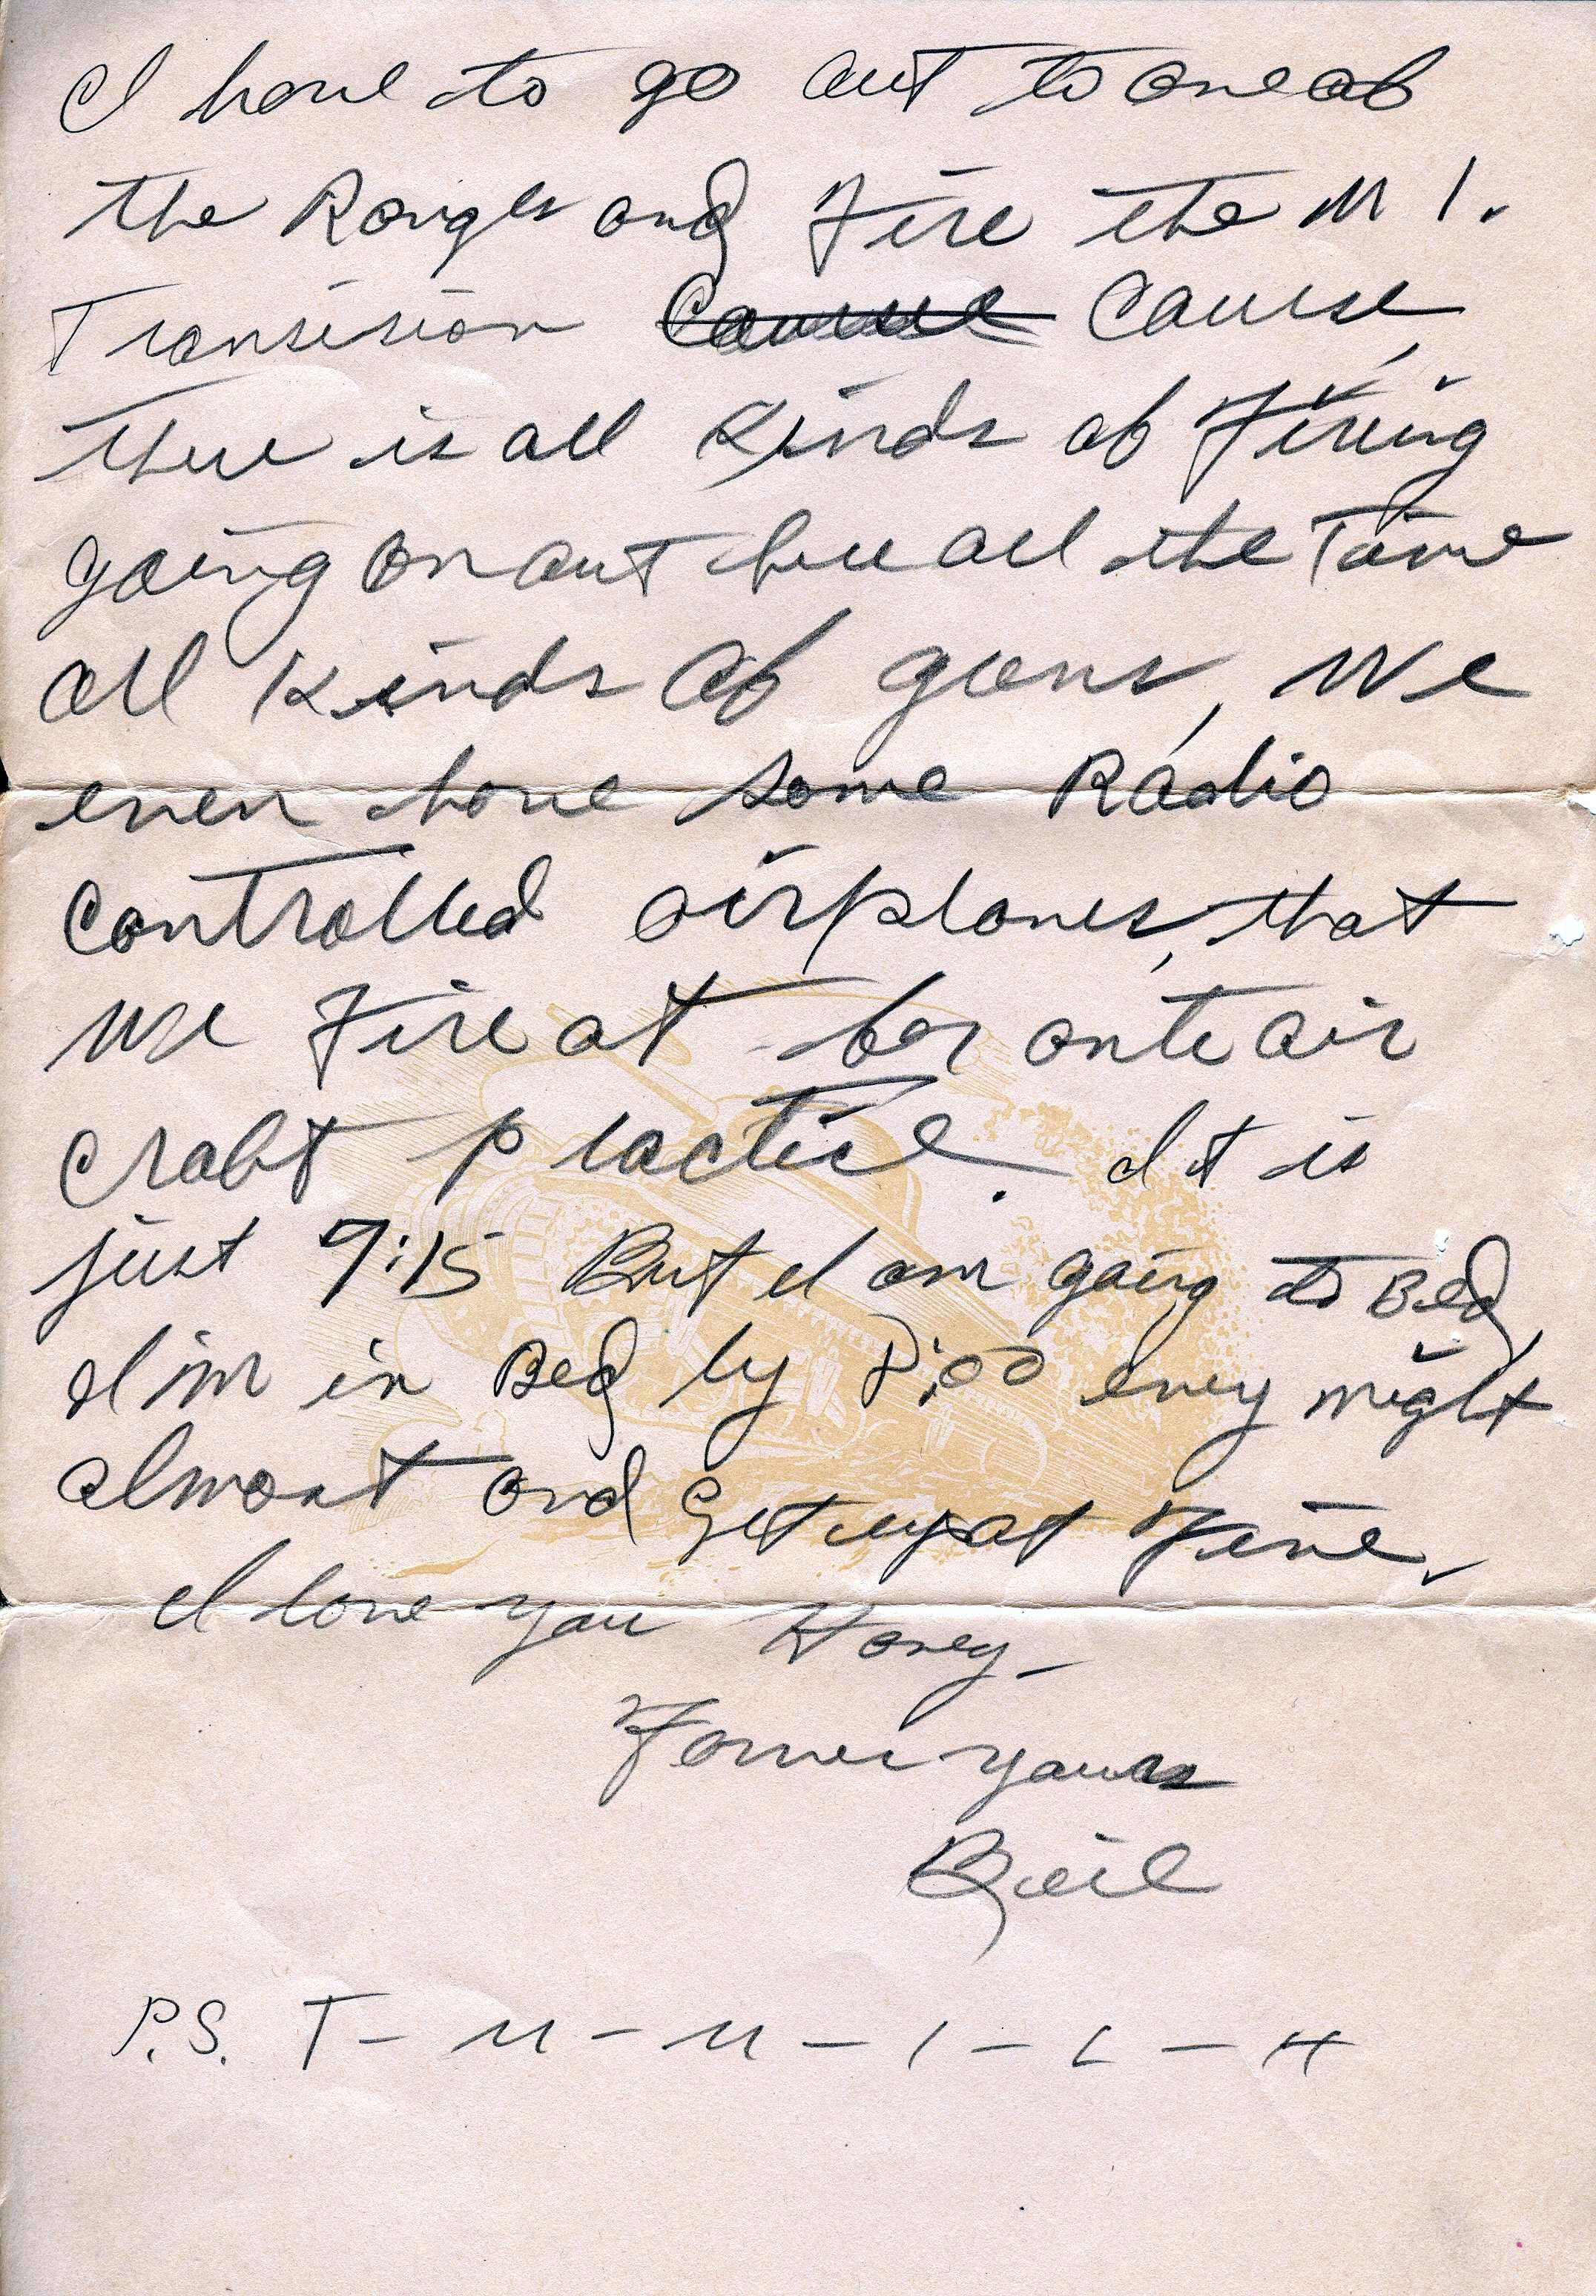 I have to go out to one of
the Ranges and Fire the M 1.
Transision Course Course,
there is all Kinds of Firing
going on out here all the Time
all Kinds of guns, We
even have some Radio
Controlled airplanes, that
we Fire at for ante air
craft practice. It is
just 7:15 But I am going to Bed,
I'm in Bed by 8:00 every night
almost and Get up at Five.
I love you Honey -
Forever yours
P.S. T - M - M - I - L - H